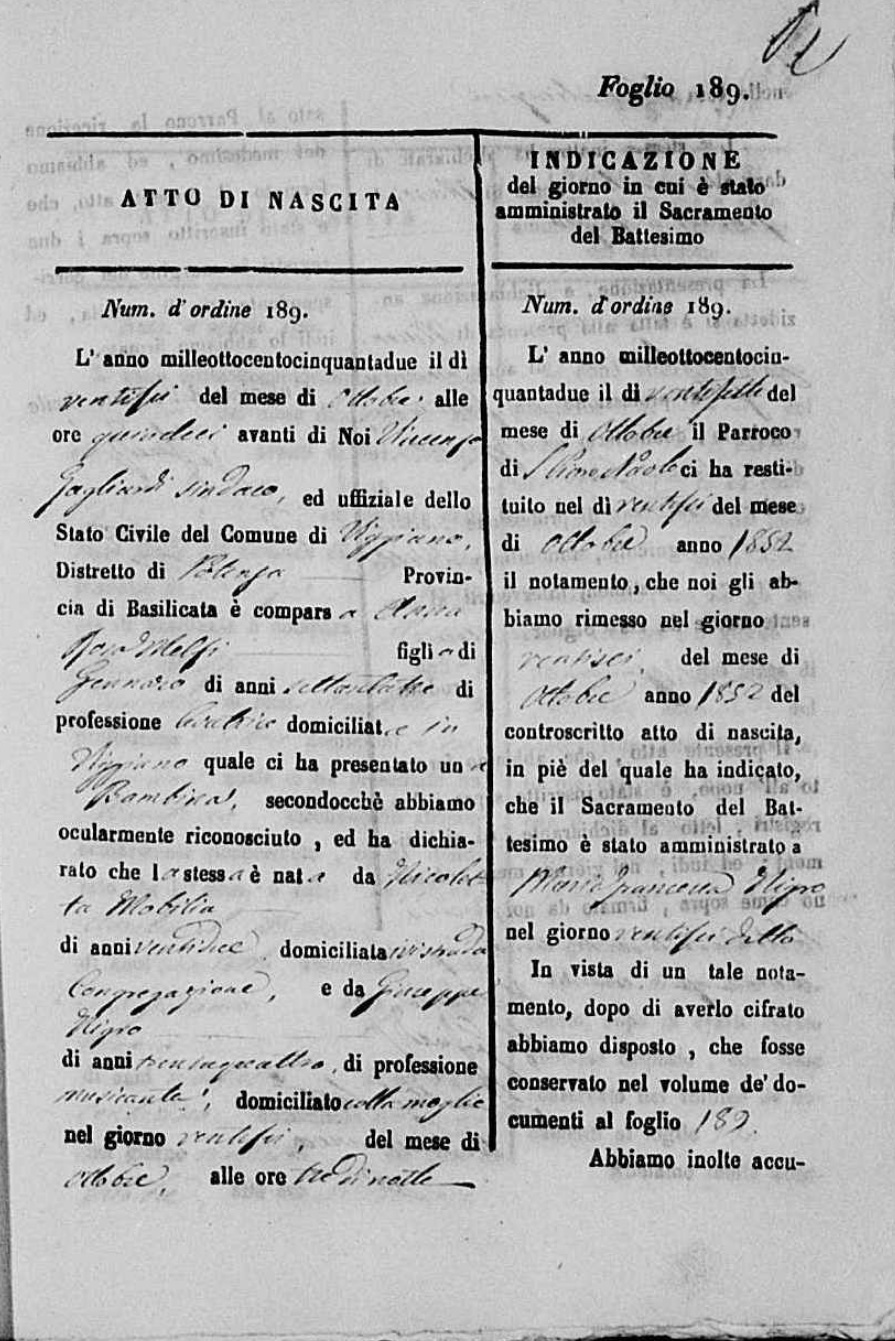 Foglio 189.
ATTO DI NASCITA
Num. d'ordine 189.
L' anno milleottocentocinquantadue il dì
ventisei del mese di Ottobre alle
ore quindici avanti di Noi Vincenzo
Gagliardi sindaco, ed uffiziale dello
Stato Civile del Comune di Viggiano,
Distretto di Potenza Provin-
cia di Basilicata è comparsa Anna
Rosa Melfi figlia di
Gennaro di anni settantatre di
professione domiciliata in
Viggiano quale ci ha presentato una
Bambina, secondocchè abbiamo
ocularmente riconosciuto, ed ha dichia-
rato che la stessa è nata da Nicolet-
ta Mobilia
di anni ventidue domiciliata in strada
Congregazione, e da Giuseppe
Nigro
di anni trentaquattro, di professione
musicante, domiciliato colla moglie
nel giorno ventisei, del mese di
ottobre, alle ore tre di notte
INDICAZIONE
del giorno in cui è stato
amministrato il Sacramento
del Battesimo
Num. d'ordine 189.
L' anno milleottocentocin-
quantadue il dì ventisette del
mese di Ottobre il Parroco
di S. Pietro Paolo ci ha resti-
tuito nel dì ventisei del mese
di Ottobre anno 1852
il notamento, che noi gli ab-
biamo rimesso nel giorno
ventisei del mese di
Ottobre anno 1852 del
controscritto atto di nascita,
in piè del quale ha indicato,
che il Sacramento del Bat-
tesimo è stato amministrato a
Maria Francesca Nigro
nel giorno ventisei detto
In vista di un tale nota-
mento, dopo di averlo cifrato
abbiamo disposto, che fosse
conservato nel volume de' do-
cumenti al foglio 189.
Abbiamo inolte accu-